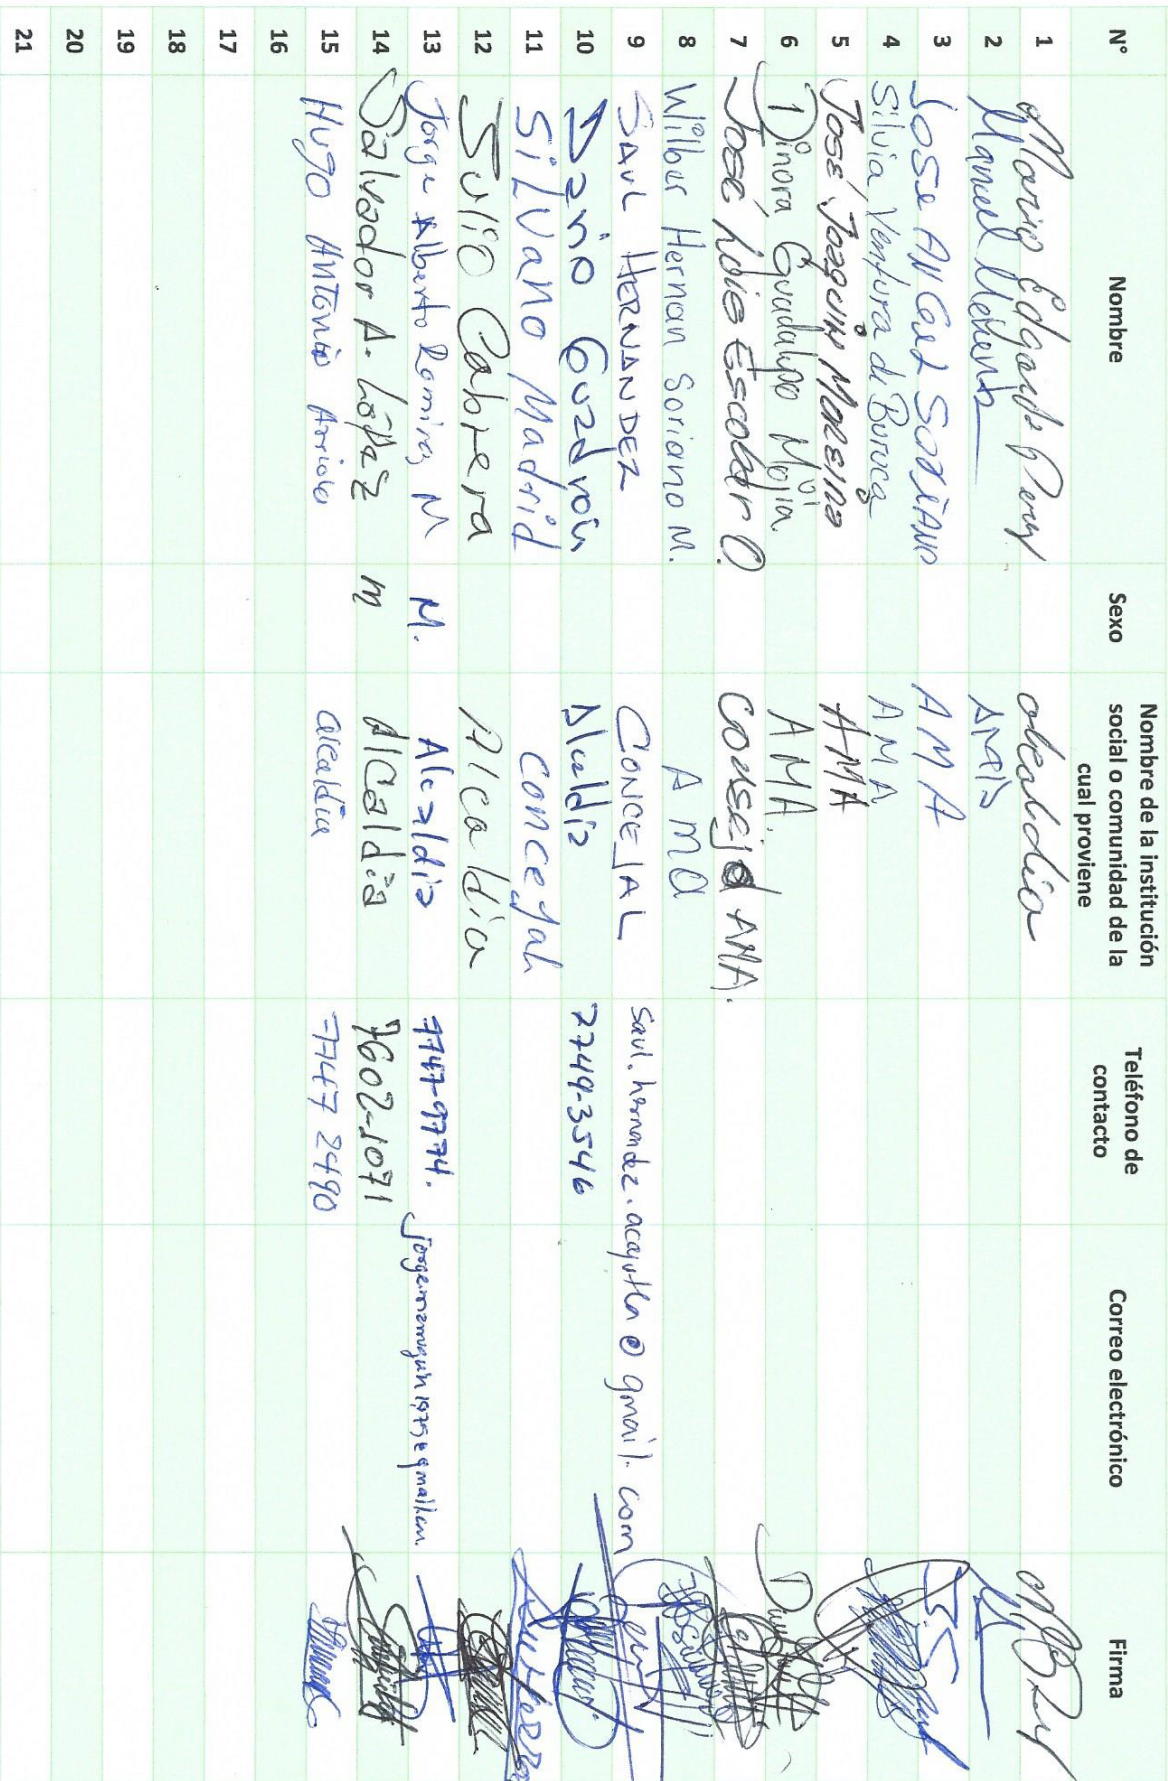 N° Nombre Sexo Nombre de la institución social o comunidad de la cual proviene Teléfono de contacto Correo electrónico Firma
1 Mario Edgardo alcaldia
2 Manuel
3 JOSE ANGEL SORIANO AMA
4 Silvia Ventura de Buruca AMA
5 JOSÉ JOAQUIN MOREINO AMA
6 Dinora Guadalupe Mejia. AMA.
7 JOSÉ ESCOBAR O. CONSEJO AMA.
8 Wilber Hernan Soriano M. AMA
9 SAUL HERNANDEZ CONCEJAL saul.hernandez.acajutla@gmail.com
10 Dario Guzdron Alcaldia 7749-3546
11 SILVANO Madrid CONCEJAL
12 JULIO Cabrera Alcaldía
13 Jorge Alberto Ramirez M M. Alcaldia 7747-9774.
14 Salvador A. López m Alcaldia 7602-1071
15 HUGO ANTONIO alcaldia 7747 2490
16
17
18
19
20
21